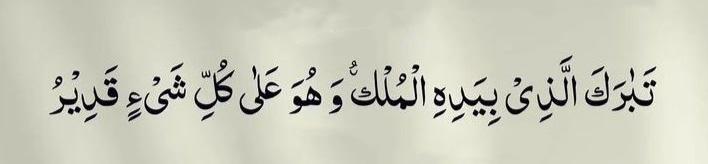 تَبٰرَكَ الَّذِىْ بِيَدِهِ الْمُلْكُ ۫ وَ هُوَ عَلٰى كُلِّ شَىْءٍ قَدِيْرُ